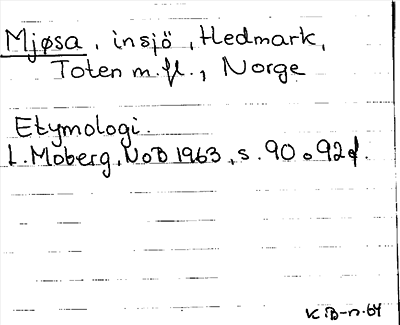 Mjøsa, insjö, Hedmark,
Toten m.fl., Norge
Etymologi.
L. Moberg, NoB 1963, s. 90 o 92f.
K B-n. 64